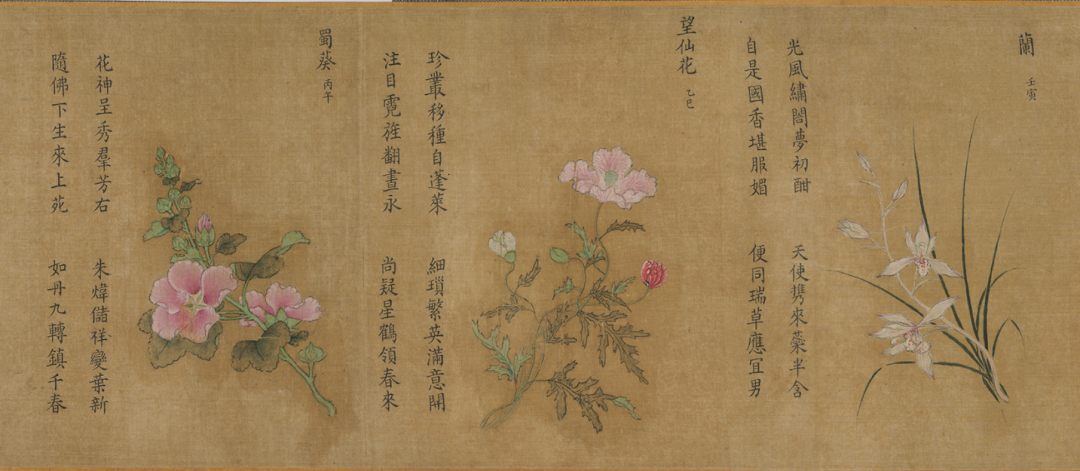 蘭 壬寅
光風繡闥夢初酣 天使携來藥半含
自是國香堪服媚 便同瑞草應宜男
望仙花 乙巳
珍叢移種自蓬萊 細瑣繁英滿意開
注目霓旌翻晝永 尚疑星鶴領春來
蜀葵 丙午
花神呈秀羣芳右 朱煒儲祥變葉新
隨佛下生來上苑 如丹九轉鎮千春